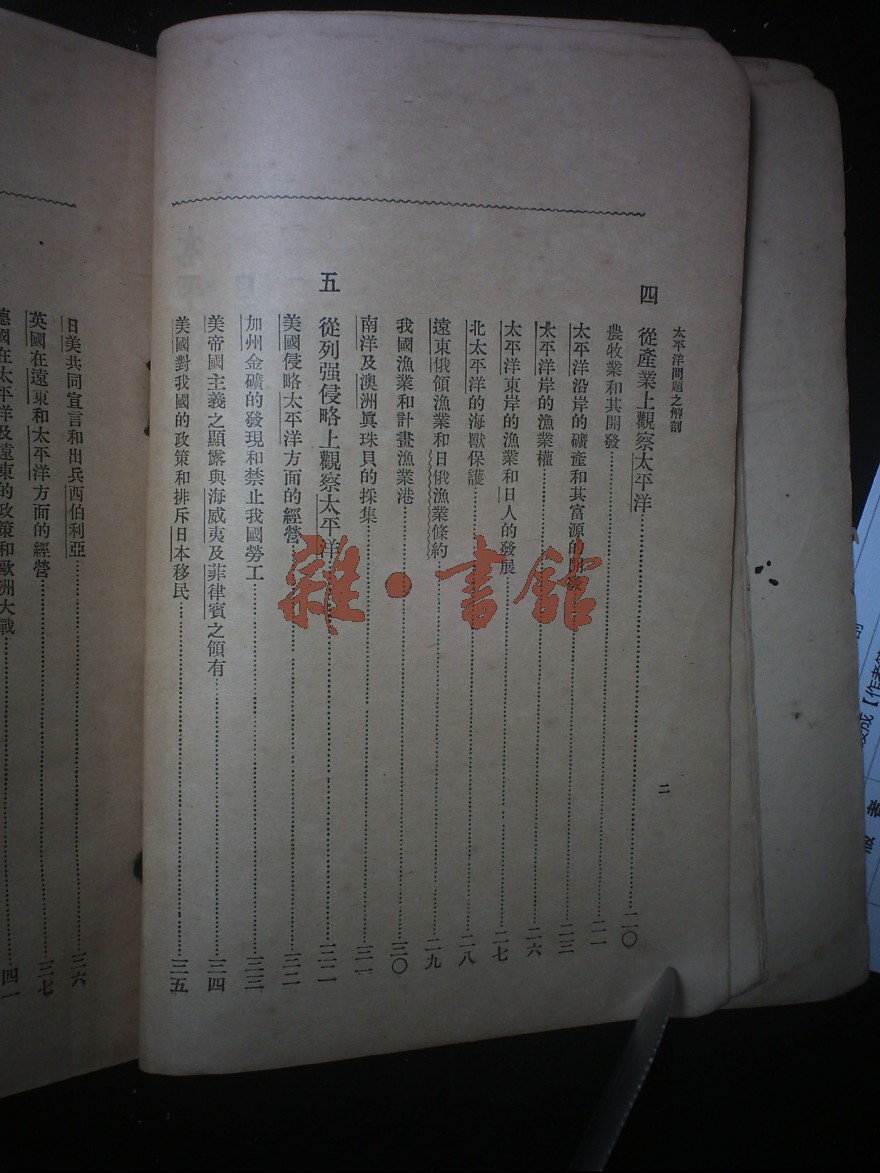 太平洋問題之解剖
二
四　從產業上觀察太平洋……二〇
農牧業和其開發……二一
太平洋沿岸的礦產和其富源的……二三
太平洋岸的漁業權……二六
太平洋東岸的漁業和日人的發展……二七
北太平洋的海獸保護……二八
遠東俄領漁業和日俄漁業條約……二九
我國漁業和計畫漁業港……三〇
南洋及澳洲眞珠貝的採集……三一
五　從列强侵略上觀察太平洋……三二
美國侵略太平洋方面的經營……三二
加州金礦的發現和禁止我國勞工……三三
美帝國主義之顯露與海威夷及菲律賓之領有……三四
美國對我國的政策和排斥日本移民……三五
日美共同宣言和出兵西伯利亞……三六
英國在遠東和太平洋方面的經營……三七
德國在太平洋及遠東的政策和歐洲大戰……四一
雜·書館